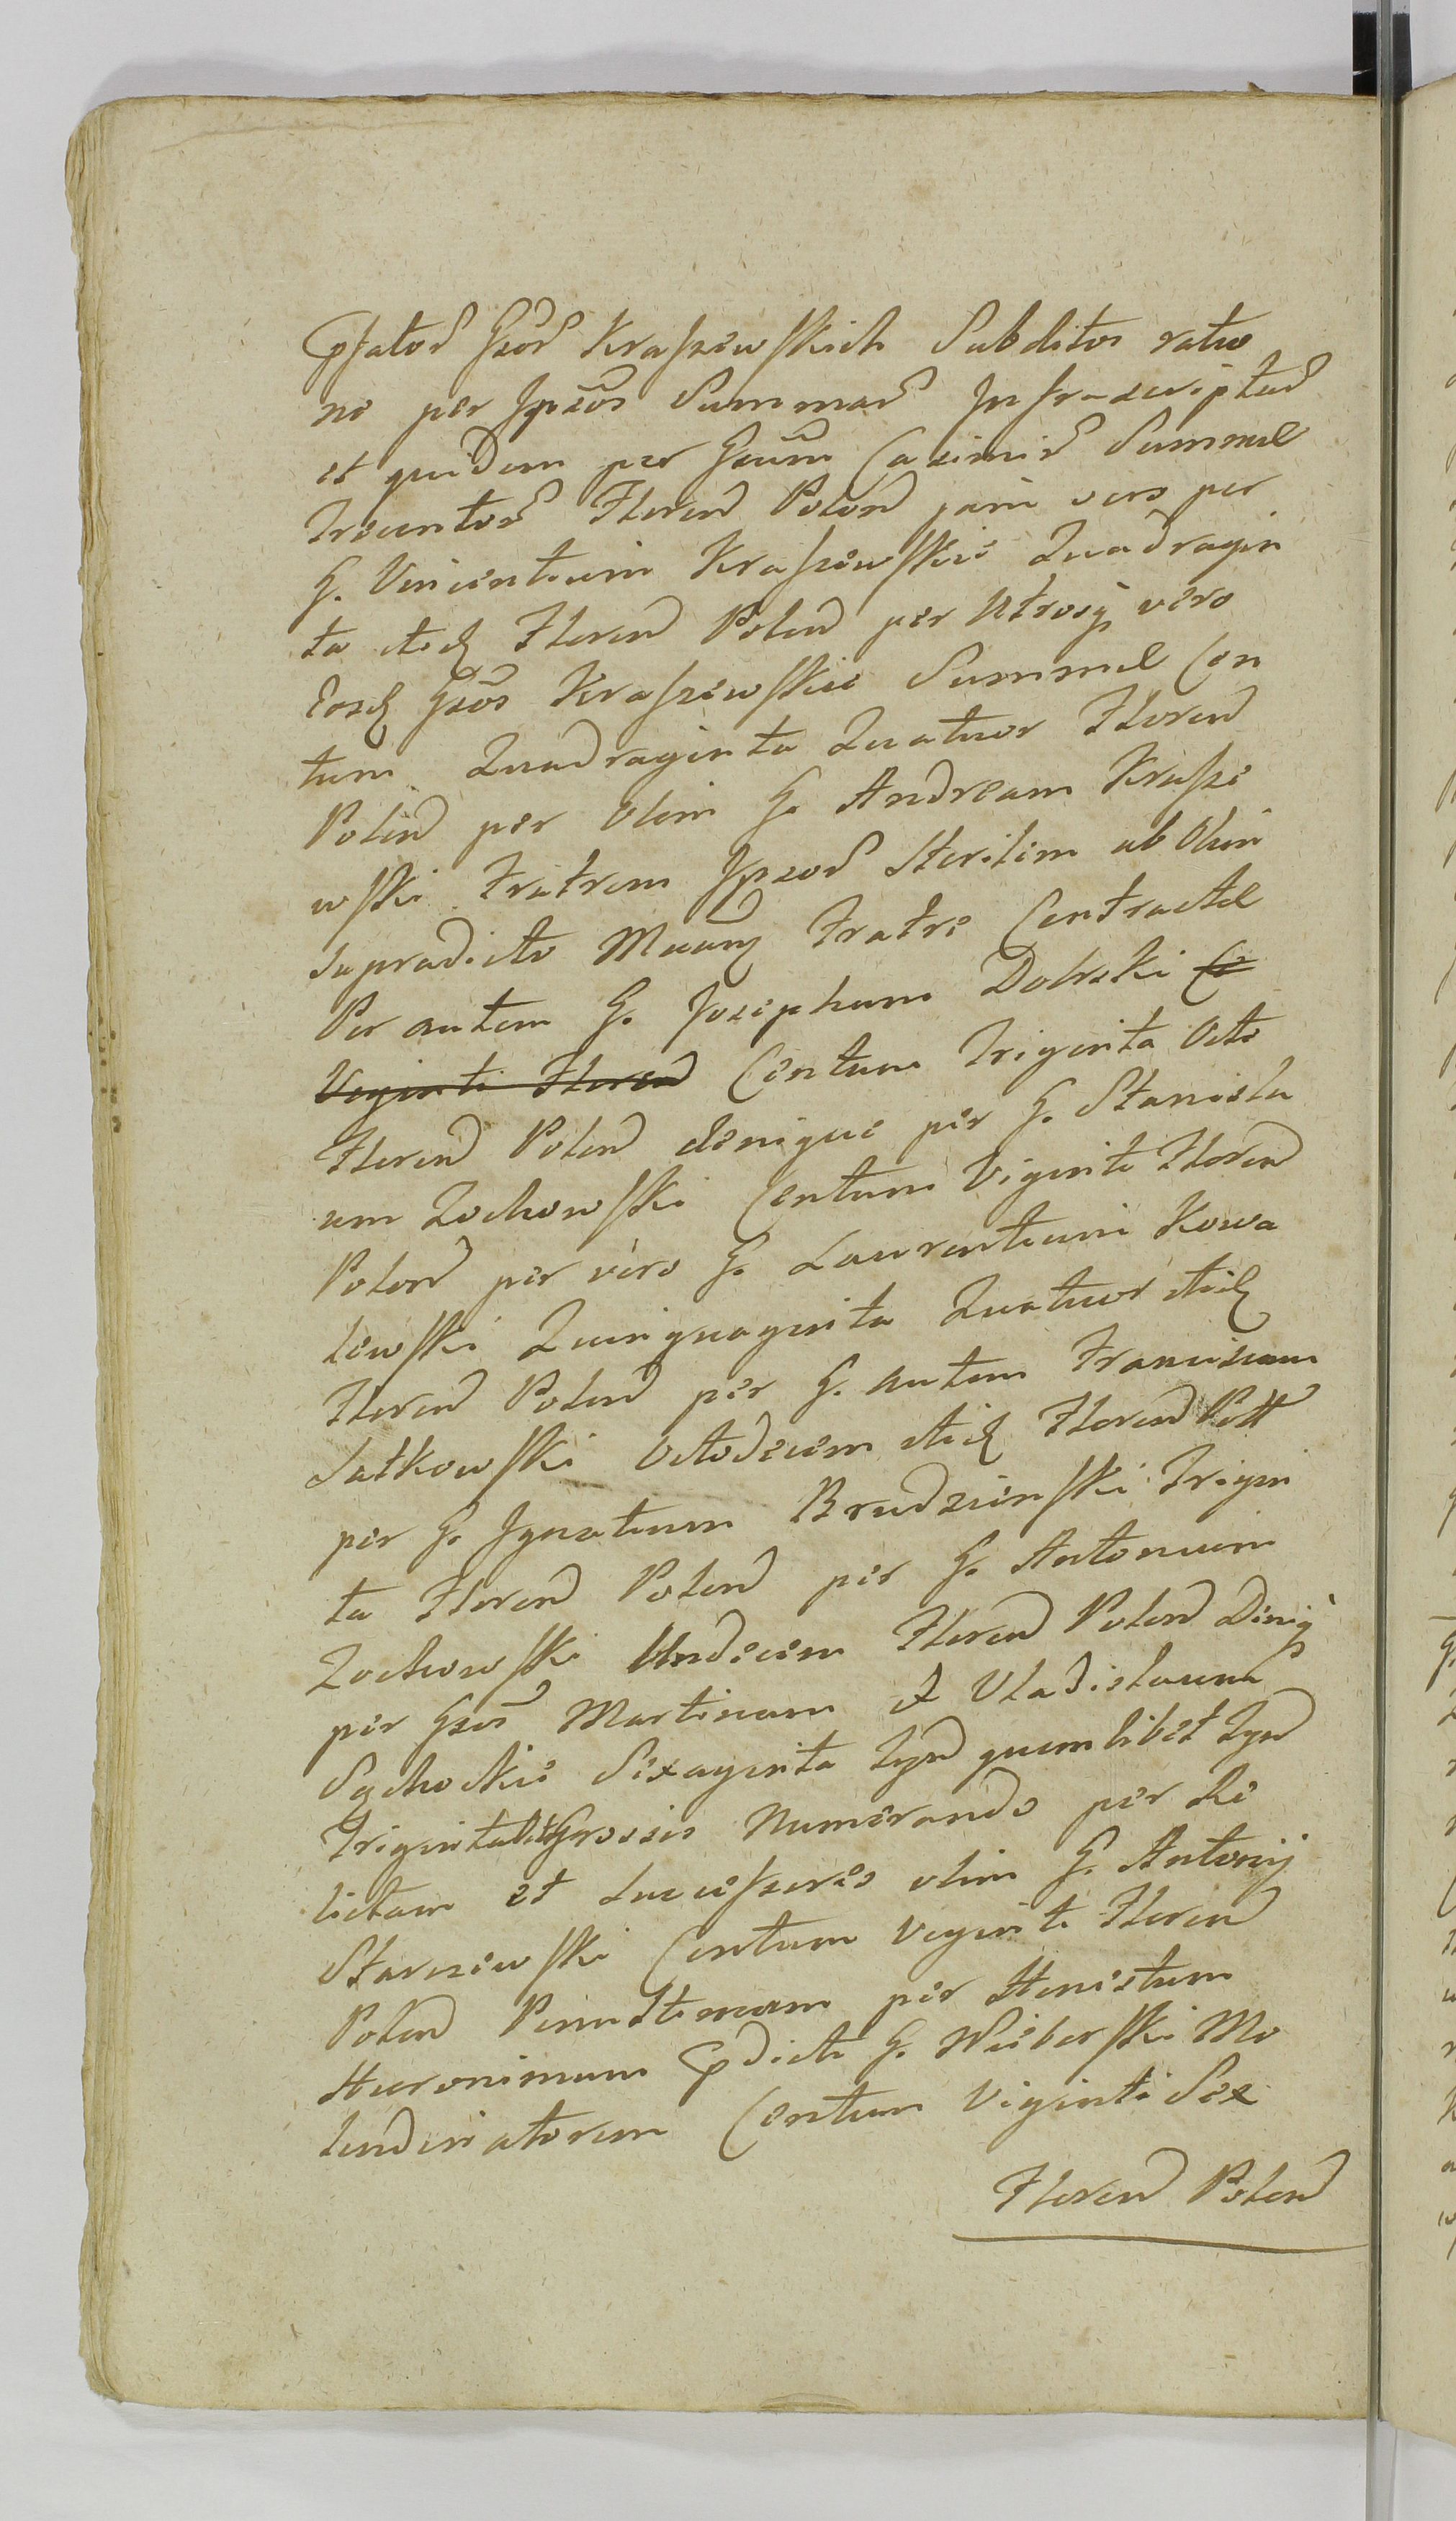 Gsōr Kraszewskich Subditos ratio
ne per Ipsōs Summar Infrascriptar
et quidem per Gsūm Casimir Summae
Trecentor Floren Polon jam vero per
G. Vincentium Kraszewskie Quadragin
ta itid Floren Polon per Utrosq vero
Eosd Gsōs Kraszewskie Summae Cen
tum Quadraginta Quatuor Floren
Polon per Olim G. Andream Krasze
wski Fratrem Ipsor Sterilem ab Olim
supradicto Fratre Contractae
Per autem G. Josephum Dobski Ce
Viginti Floren Centum Triginta Octo
Floren Polon denique per G. Stanisla
um Zochowski Centum Viginti Floren
Polon per vero G. Laurentium Kowa
lewski Quinquaginta Quatuor itid
Floren Polon per G. autem Franciscum
Sutkowski Octodecem itid Floren Poll
per G. Ignatium Brudzienski Trigin
ta Floren Polon per G. Antonium
Zochowski Undecem Floren Polon Deniq
per Gsos Martinum et Vladislaum
Sachockie Sexaginta Tynf quemlibet Tynf
Triginta Octo Grossis Numerando per Re
lictam et Successores olim G. Antonij
Starczewski Centum Viginti Floren
Polon per Honestum
Hieronimum dicti G. Wieberski Mo
lendinatorem Centum Viginti Sex
Floren Polon